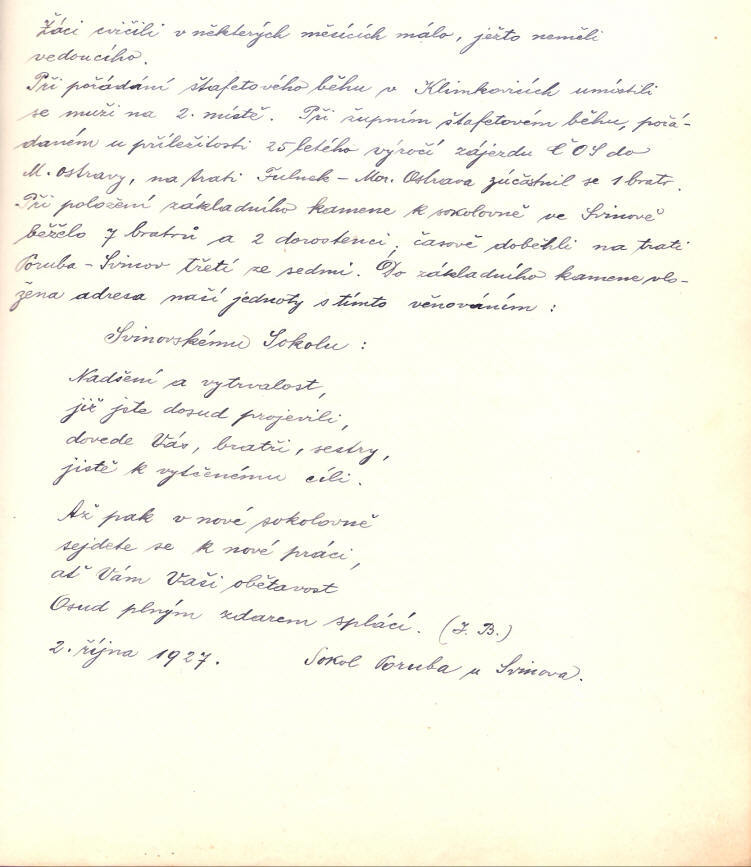 Žáci cvičili v některých měsících málo, ježto neměli
vedoucího.
Při pořádání štafetového běhu v Klimkovicích umístili
se muži na 2. místě. Při župním štafetovém běhu, pořá-
daném u příležitosti 25letého výročí zájezdu ČOS do
M. Ostravy, na trati Fulnek - Mor. Ostrava zúčastnil se 1 bratr.
Při položení základního kamene k sokolovně ve Svinově
běželo 7 bratrů a 2 dorostenci; časově doběhli na trati
Poruba - Svinov třetí ze sedmi. Do základního kamene vlo-
žena adresa naší jednoty s tímto věnováním :
Svinovskému Sokolu :
Nadšení a vytrvalost,
již jste dosud projevili,
dovede Vás, bratři, sestry,
jistě k vytčenému cíli.
Až pak v nové sokolovně
sejdete se k nové práci,
ať Vám Vaši obětavost
Osud plným zdarem splácí. (J. B.)
2. října 1927. Sokol Poruba u Svinova.